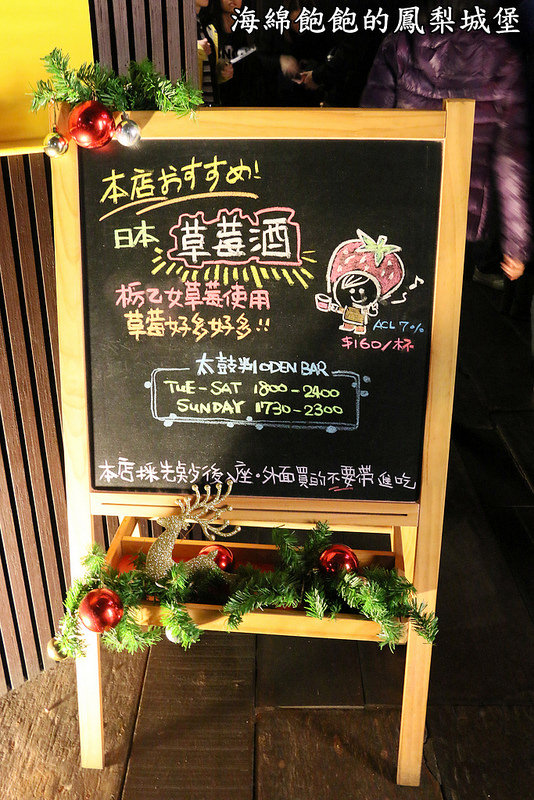 海綿飽飽的鳳梨城堡
本店おすすめ!
日本、草莓酒
栃乙女草莓使用
草莓好多好多!!
ACL 7%
$160/杯
太鼓判 ODEN BAR
TUE-SAT 1800-2400
SUNDAY 1730-2300
本店採先點後座·外面買的不要帶進吃